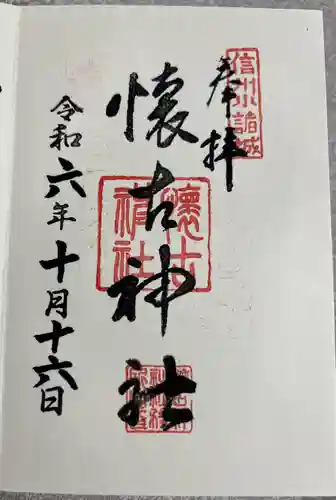 奉拝
信州小諸城
懐古神社
懐古神社
令和六年十月十六日